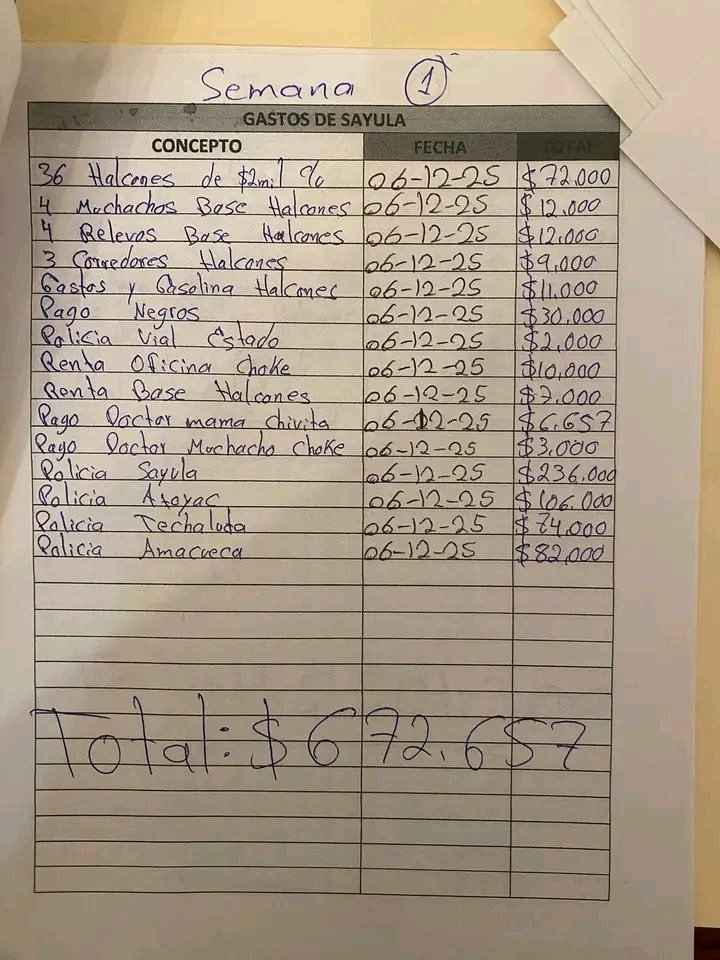 Semana 1
GASTOS DE SAYULA
CONCEPTO FECHA TOTAL
36 Halcones de $2mil % 06-12-25 $72.000
4 Muchachos Base Halcones 06-12-25 $12.000
4 Relevos Base Halcones 06-12-25 $12.000
3 Corredores Halcones 06-12-25 $9,000
Gastos y Gasolina Halcones 06-12-25 $11.000
Pago Negros 06-12-25 $30.000
Policia Vial Estado 06-12-25 $2.000
Renta Oficina Choke 06-12-25 $10,000
Renta Base Halcones 06-12-25 $7.000
Pago Doctor mama chivita 06-12-25 $6.657
Pago Doctor Muchacho Choke 06-12-25 $3.000
Policia Sayula 06-12-25 $236.000
Policia Atoyac 06-12-25 $106.000
Policia Techaluda 06-12-25 $74.000
Policia Amacueca 06-12-25 $82.000
Total: $672.657